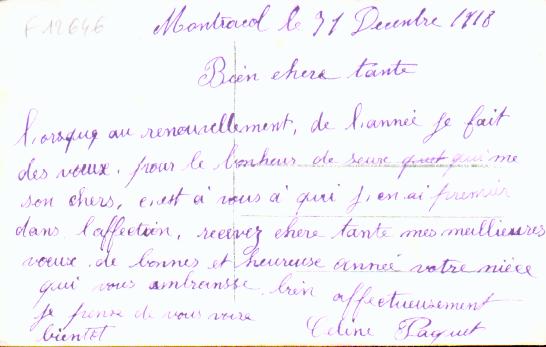 F 12646
Montracol le 31 Decenbre 1918
Bien chere tante
Lorsque au renouvellement, de l,année je fait
des vœux, pour le bonheur de seux quet qui me
son chers, c,est a vous a qui j,en ai premier
dans l'affection, recevez chere tante mes meillieures
vœux de bonnes et heureuse année votre nièce
qui vous ambransse bien affectueusement
je pense de vous voire
bientot Celine Paquet